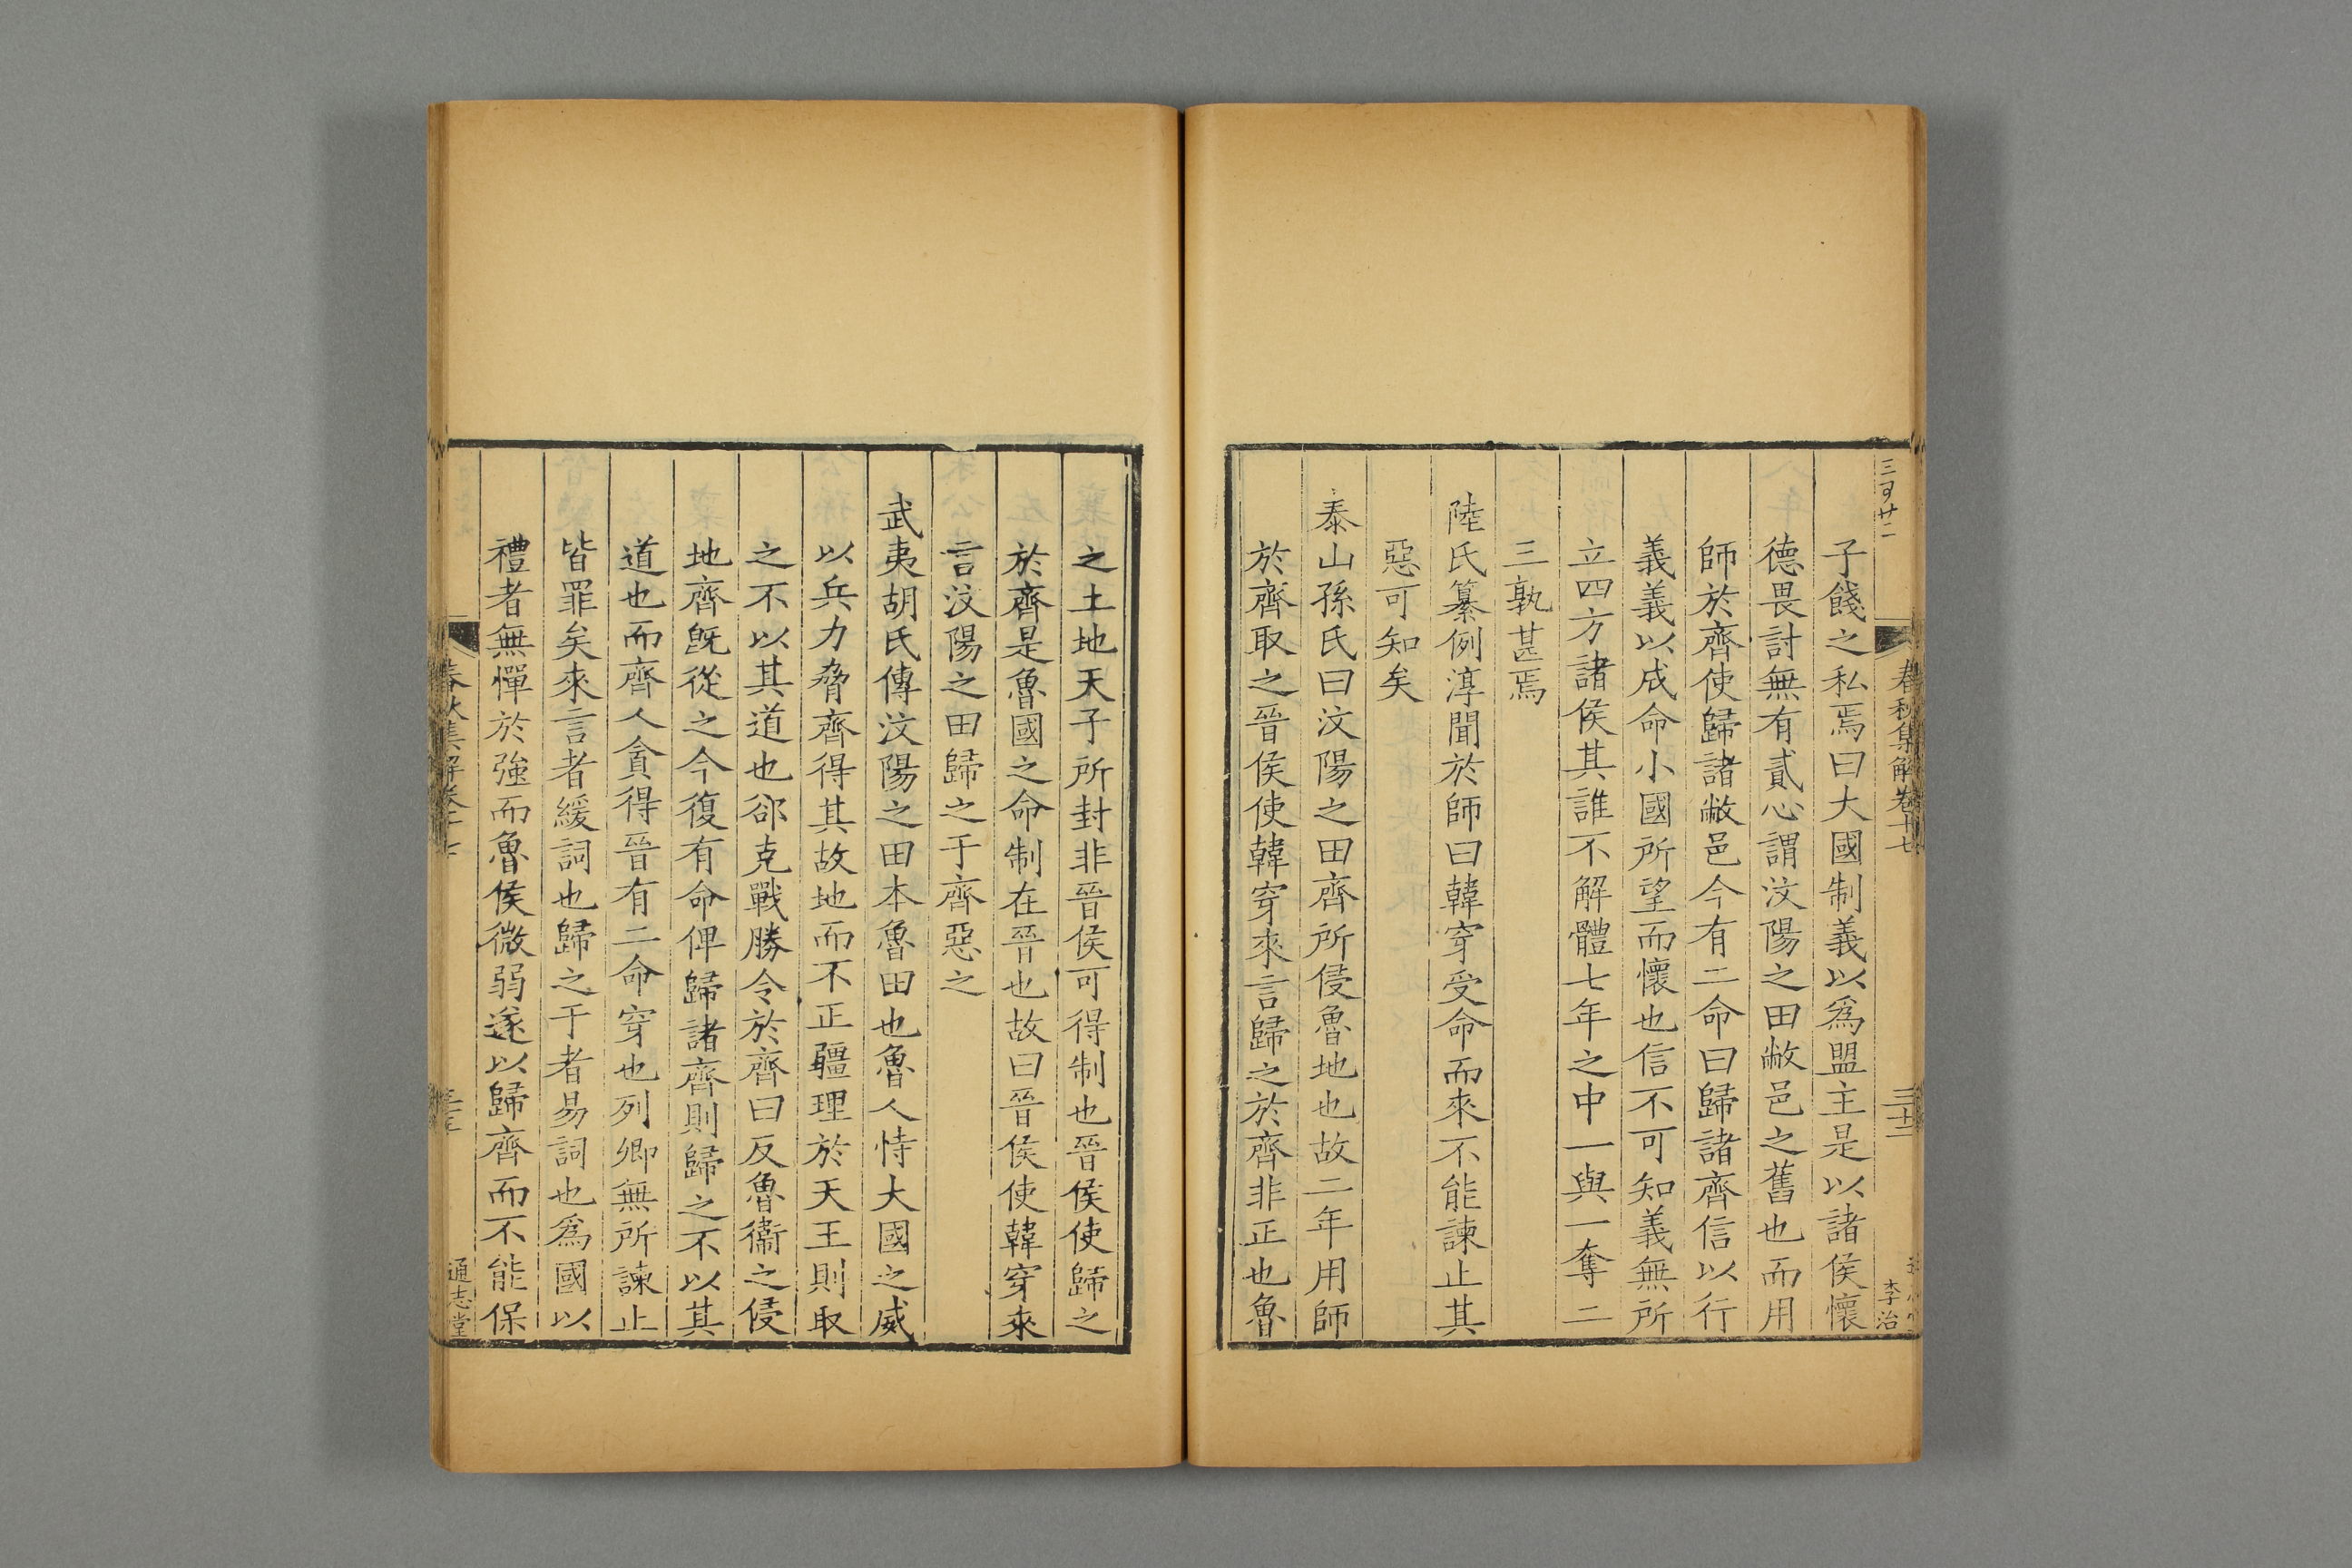 三百廿二
春秋集解卷十七
三十二
李治
子餞之私焉曰大國制義以爲盟主是以諸侯懷
德畏討無有貳心謂汶陽之田敝邑之舊也而用
師於齊使歸諸敝邑今有二命曰歸諸齊信以行
義義以成命小國所望而懷也信不可知義無所
立四方諸侯其誰不解體七年之中一與一奪二
三孰甚焉
陸氏纂例淳聞於師曰韓穿受命而來不能諫止其
惡可知矣
泰山孫氏曰汶陽之田齊所侵魯地也故二年用師
於齊取之晉侯使韓穿來言歸之於齊非正也魯
之土地天子所封非晉侯可得制也晉侯使歸之
於齊是魯國之命制在晉也故曰晉侯使韓穿來
言汶陽之田歸之于齊惡之
武夷胡氏傳汶陽之田本魯田也魯人恃大國之威
以兵力脅齊得其故地而不正疆理於天王則取
之不以其道也郤克戰勝令於齊曰反魯衞之侵
地齊既從之今復有命俾歸諸齊則歸之不以其
道也而齊人貪得晉有二命穿也列卿無所諫止
皆罪矣來言者緩詞也歸之于者易詞也爲國以
禮者無憚於強而魯侯微弱遂以歸齊而不能保
春秋集解卷十七
通志堂